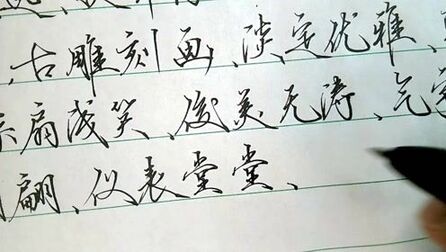 、古雕刻画、淡定优雅、
扇浅笑、俊美无涛、气宇
翩、仪表堂堂、